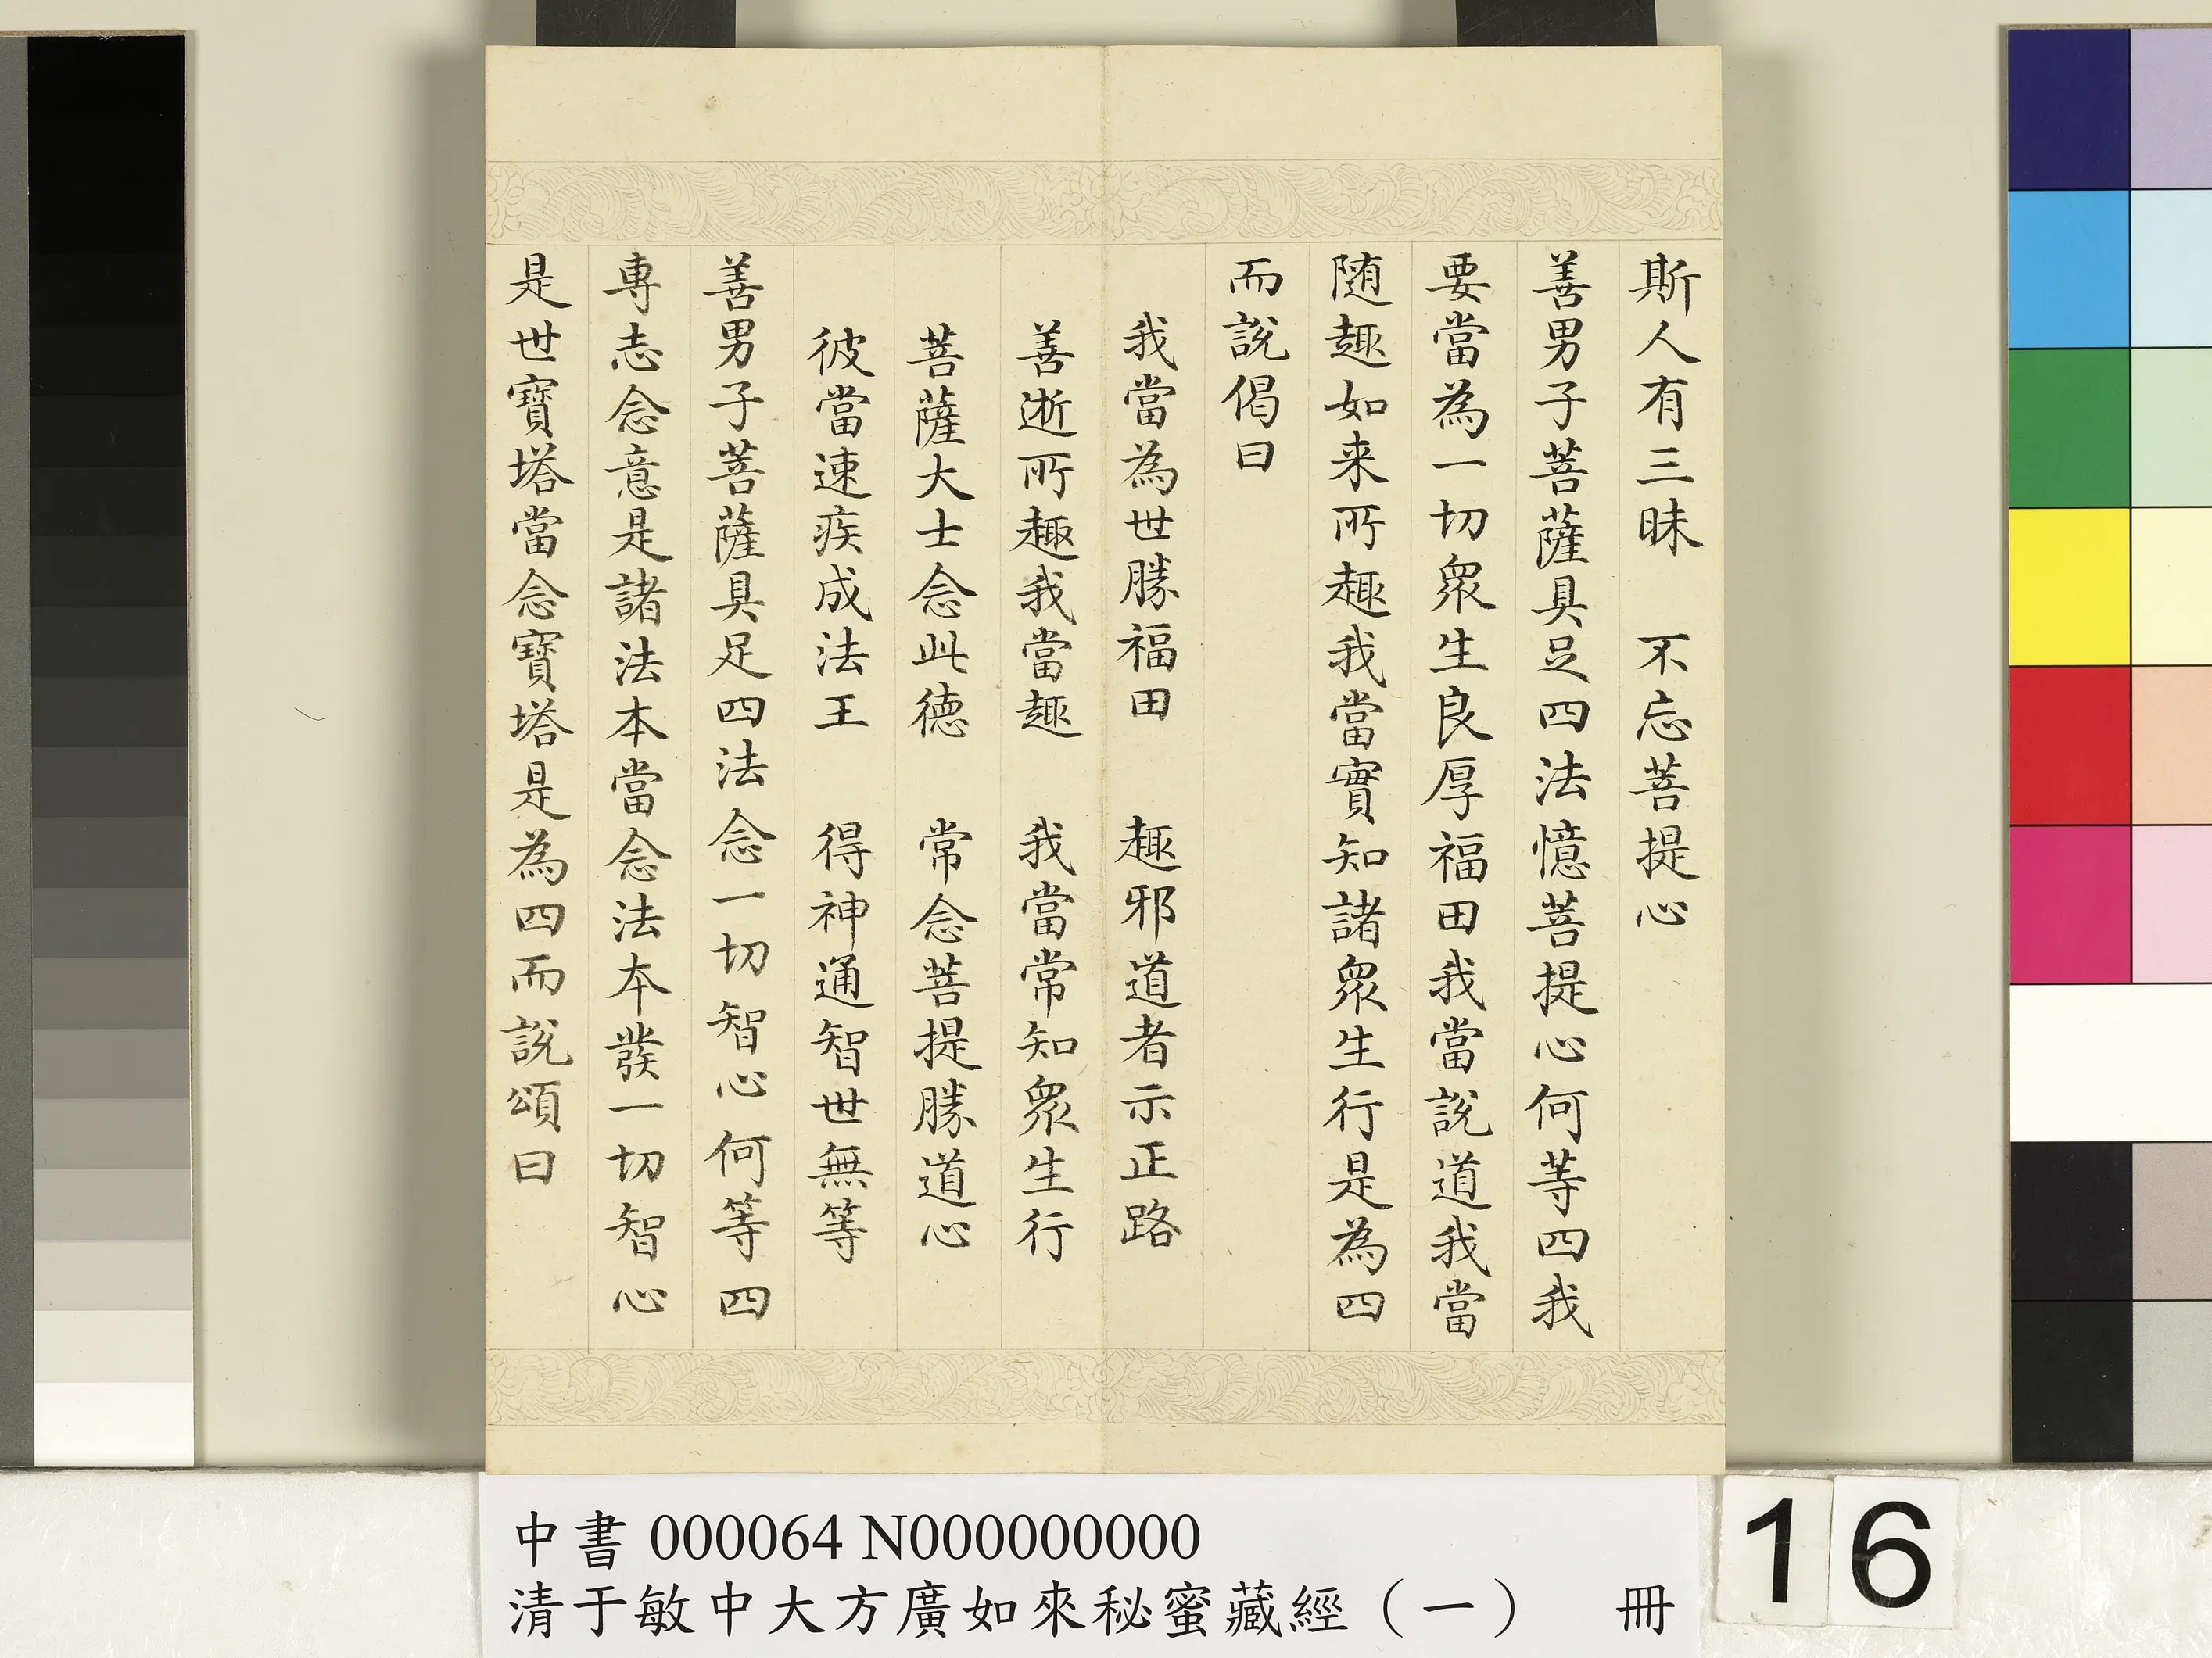 斯人有三昧　不忘菩提心
善男子菩薩具足四法憶菩提心何等四我
要當為一切眾生良厚福田我當說道我當
随趣如来所趣我當實知諸眾生行是為四
而說偈曰
我當為世勝福田　趣邪道者示正路
善逝所趣我當趣　我當常知眾生行
菩薩大士念此德　常念菩提勝道心
彼當速疾成法王　得神通智世無等
善男子菩薩具足四法念一切智心何等四
専志念意是諸法本當念法本發一切智心
是世寶塔當念寶塔是為四而說頌曰
中書 000064 N000000000
清于敏中大方廣如來秘蜜藏經（一）　冊
16